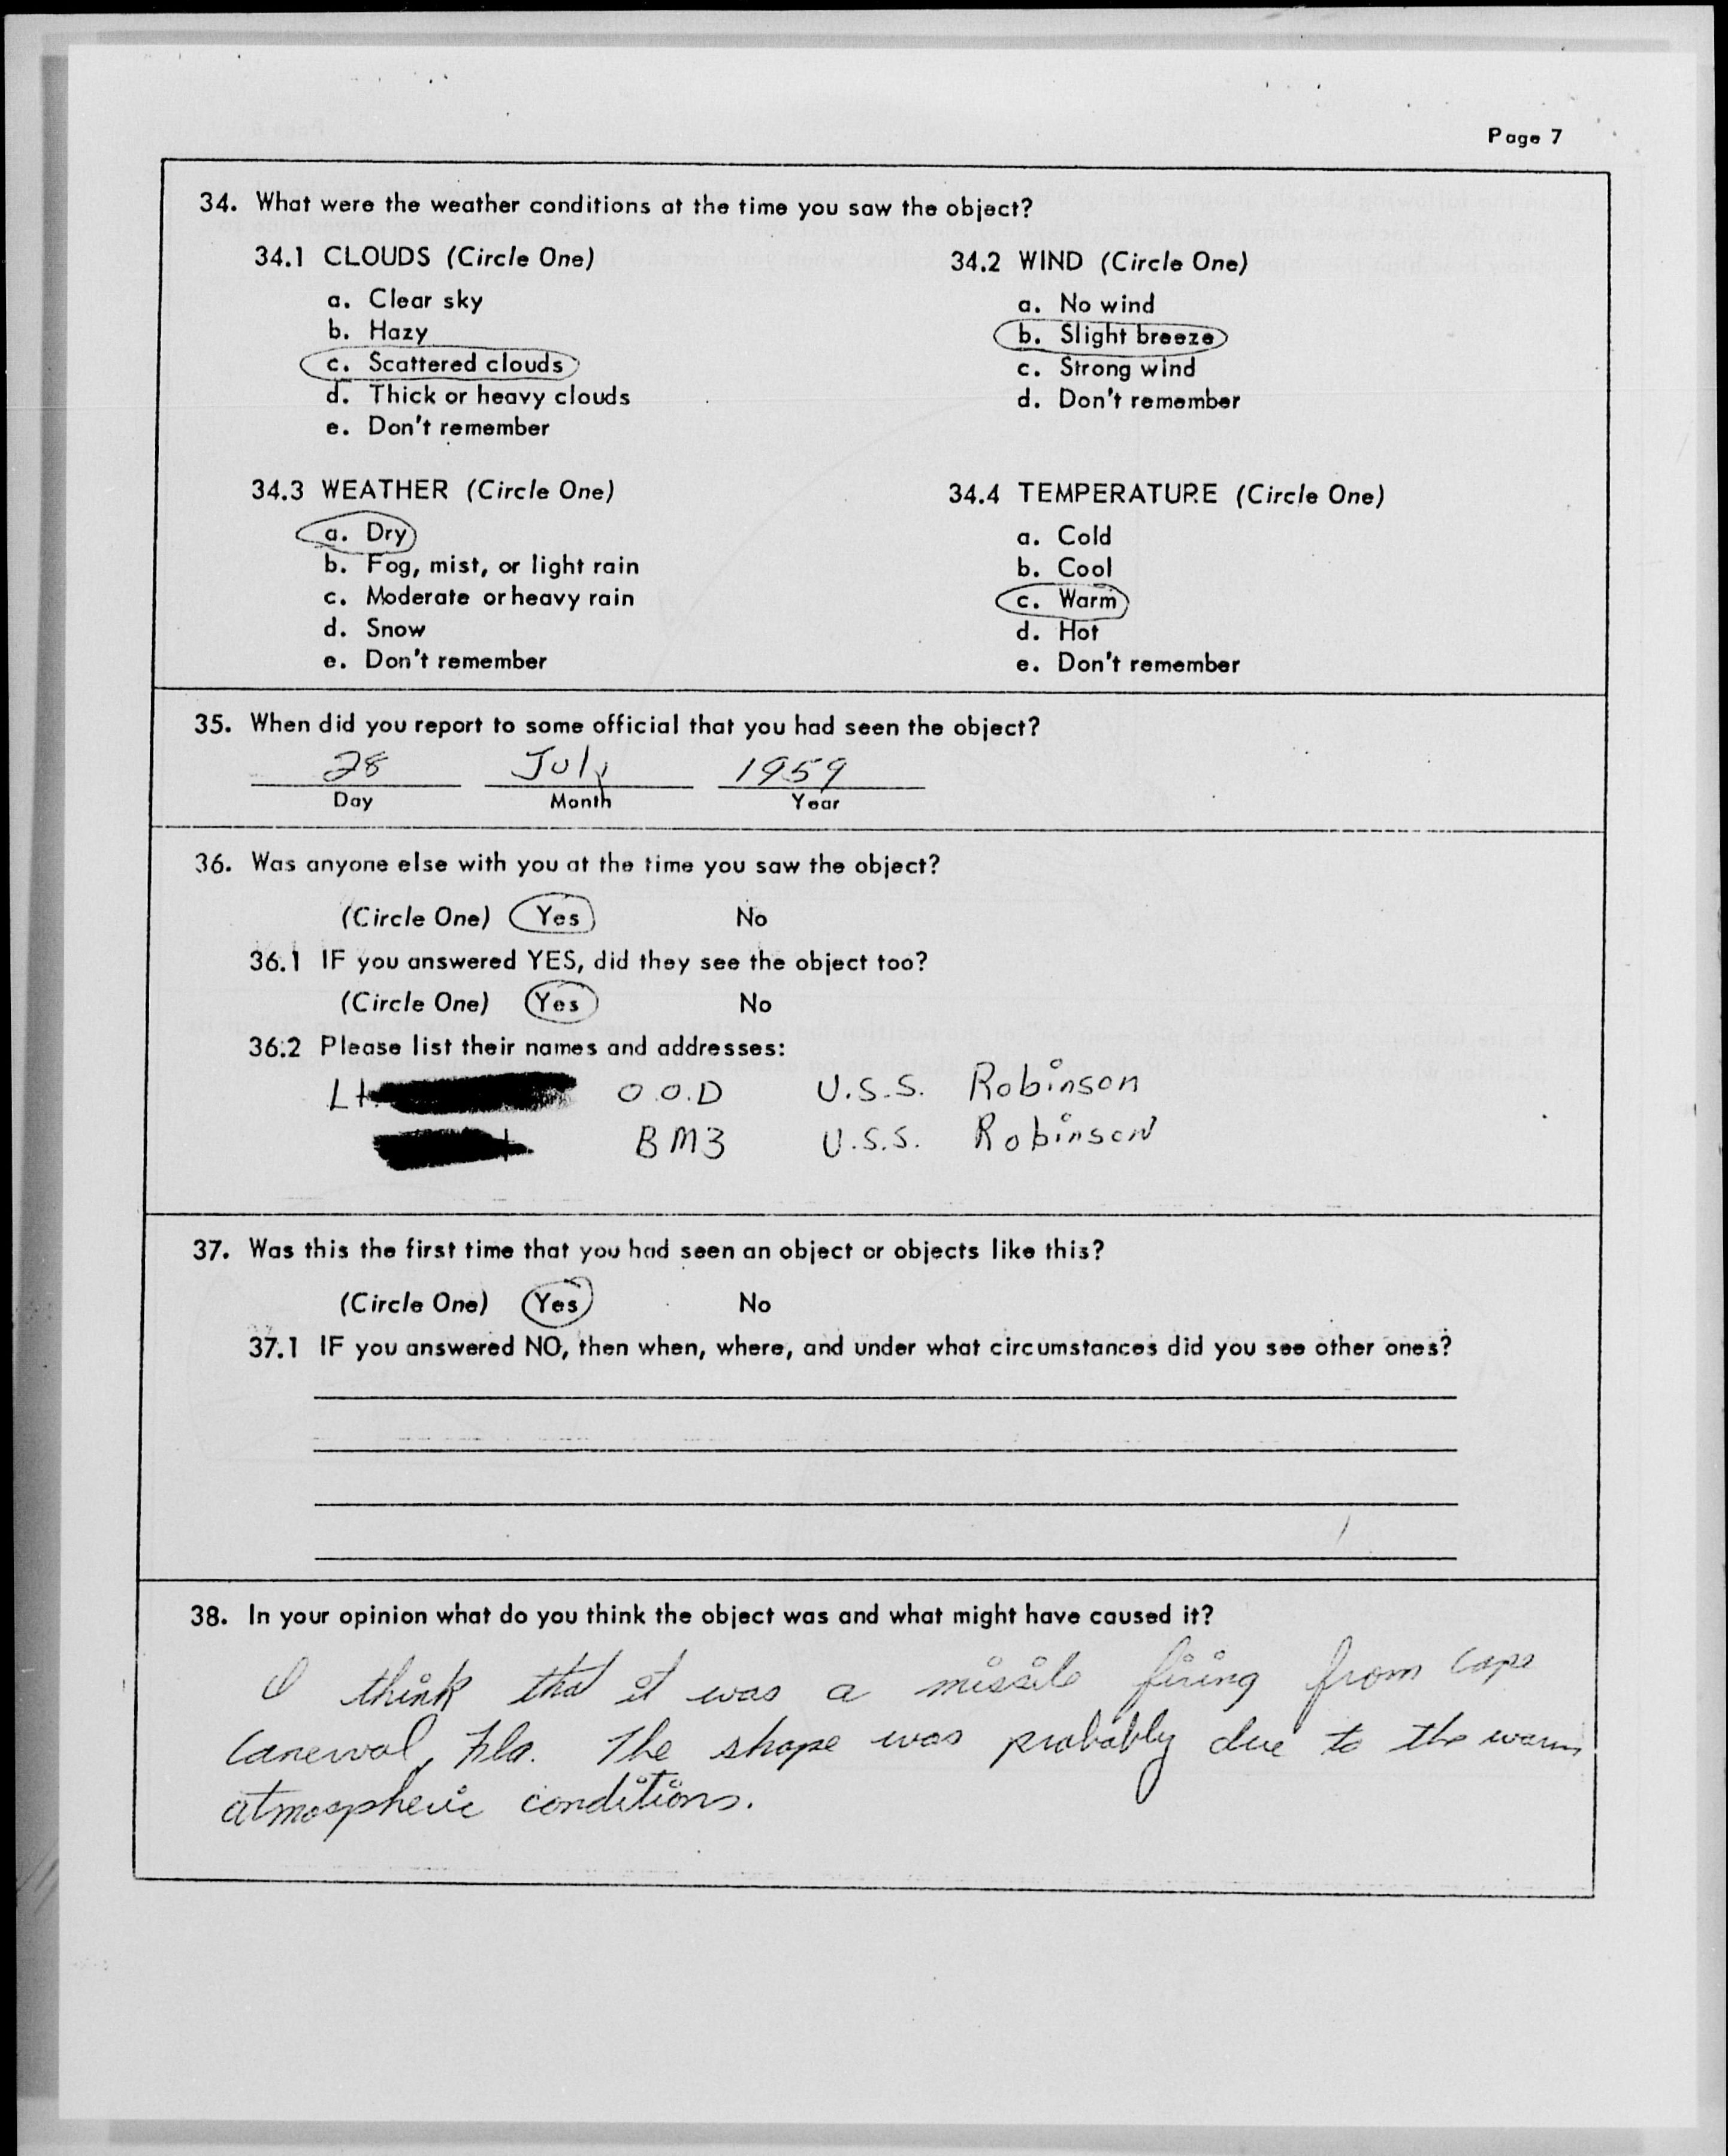 Page 7
34. What were the weather conditions at the time you saw the object?
34.1 CLOUDS (Circle One)
a. Clear sky
b. Hazy
c. Scattered clouds
d. Thick or heavy clouds
e. Don't remember
34.2 WIND (Circle One)
a. No wind
b. Slight breeze
c. Strong wind
d. Don't remember
34.3 WEATHER (Circle One)
a. Dry
b. Fog, mist, or light rain
c. Moderate or heavy rain
d. Snow
e. Don't remember
34.4 TEMPERATURE (Circle One)
a. Cold
b. Cool
c. Warm
d. Hot
e. Don't remember
35. When did you report to some official that you had seen the object?
28 July 1959
Day Month Year
36. Was anyone else with you at the time you saw the object?
(Circle One) Yes No
36.1 IF you answered YES, did they see the object too?
(Circle One) Yes No
36.2 Please list their names and addresses:
Lt. O.O.D U.S.S. Robinson
BM3 U.S.S. Robinson
37. Was this the first time that you had seen an object or objects like this?
(Circle One) Yes No
37.1 IF you answered NO, then when, where, and under what circumstances did you see other ones?
38. In your opinion what do you think the object was and what might have caused it?
I think that it was a missile firing from Cape
Canerval, Fla. The shape was probably due to the warm
atmospheric conditions.